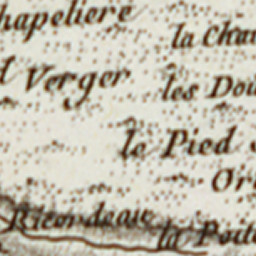 hapeliere
la Cha
Verger
les Dou
le Pied
Or
Ricordeau
la Poite